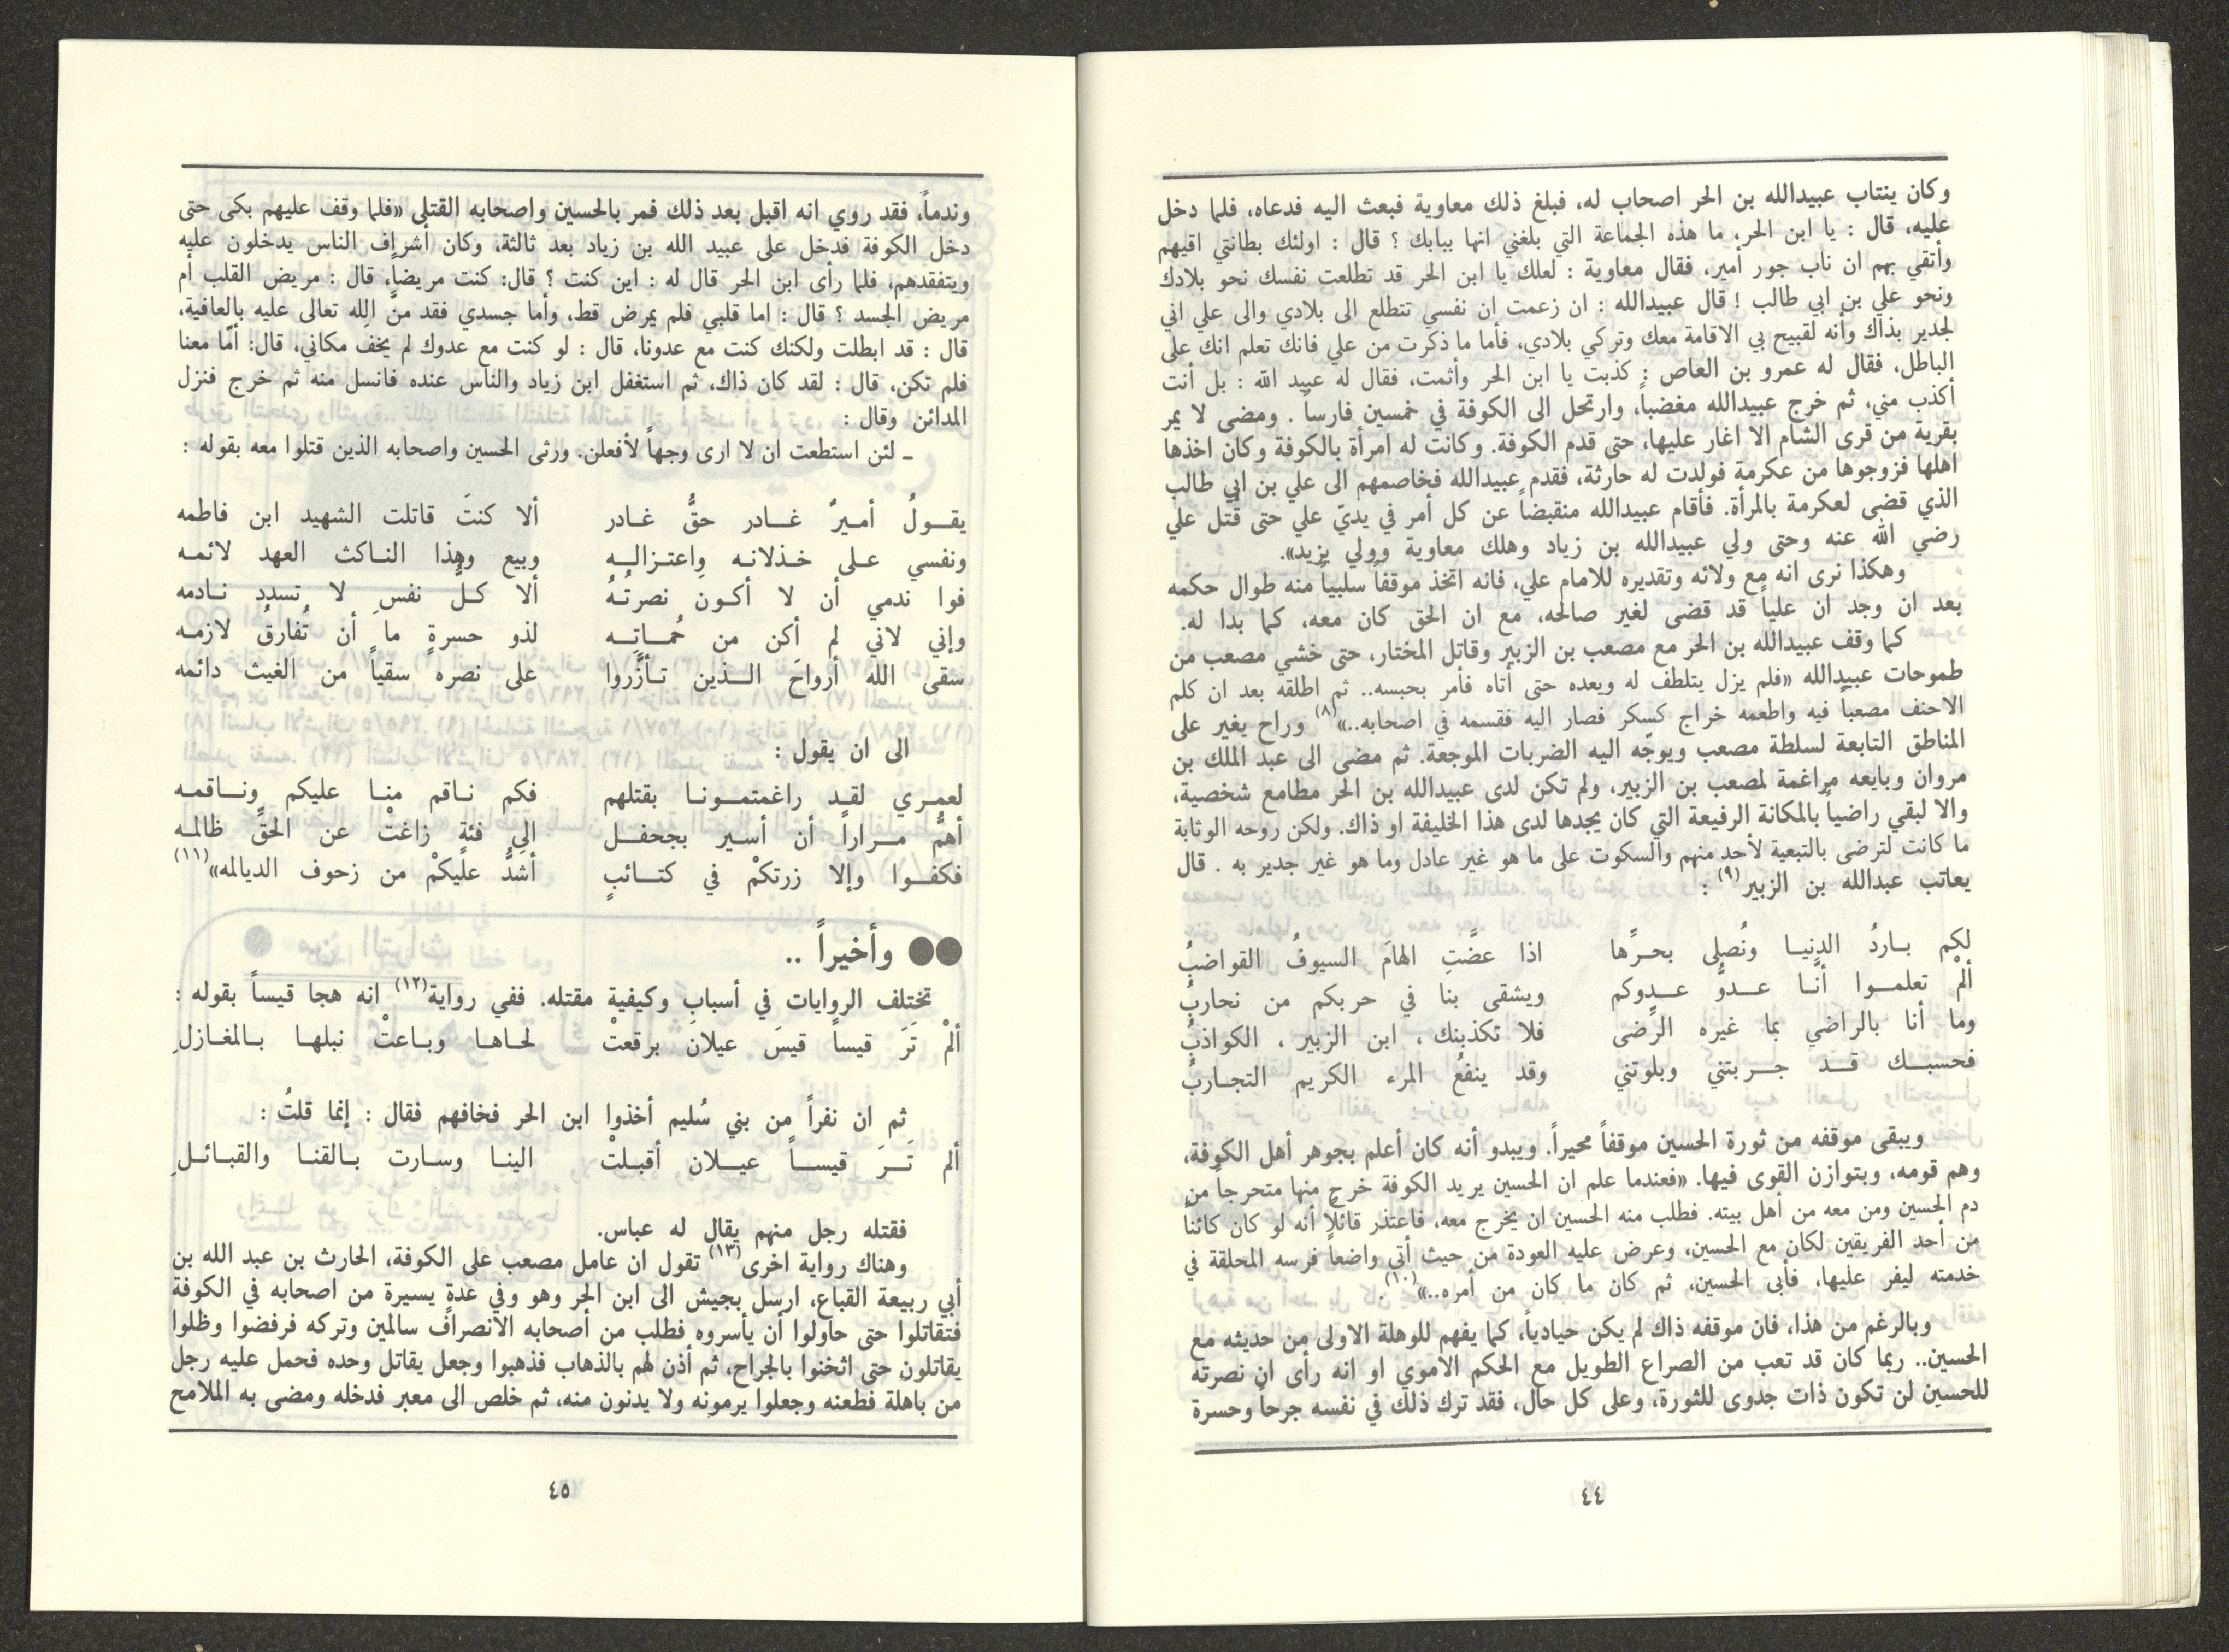 وكان ينتاب عبيدالله بن الحر اصحاب له، فبلغ ذلك معاوية فبعث اليه فدعاه، فلما دخل
عليه، قال : يا ابن الحر، ما هذه الجماعة التي بلغني انها ببابك ؟ قال : اولئك بطانتي اقيهم
وأتقي بهم ان ناب جور أمير، فقال معاوية : لعلك يا ابن الحر قد تطلعت نفسك نحو بلادك
ونحو علي بن ابي طالب ! قال عبيدالله : ان زعمت ان نفسي تتطلع الى بلادي والى علي اني
لجدير بذاك وأنه لقبيح بي الاقامة معك وتركي بلادي، فأما ما ذكرت من علي فانك تعلم انك على
الباطل، فقال له عمرو بن العاص : كذبت يا ابن الحر وأثمت، فقال له عبيد الله : بل أنت
أكذب مني، ثم خرج عبيدالله مغضباً، وارتحل الى الكوفة في خمسين فارساً . ومضى لا يمر
بقرية من قرى الشام الا اغار عليها، حتى قدم الكوفة. وكانت له امرأة بالكوفة وكان اخذها
اهلها فزوجوها من عكرمة فولدت له حارثة، فقدم عبيدالله فخاصمهم الى علي بن ابي طالب
الذي قضى لعكرمة بالمرأة. فأقام عبيدالله منقبضاً عن كل أمر في يديّ علي حتى قُتل علي
رضي الله عنه وحتى ولي عبيدالله بن زياد وهلك معاوية وولي يزيد».
وهكذا نرى انه مع ولائه وتقديره للامام علي، فانه اتخذ موقفاً سلبياً منه طوال حكمه
بعد ان وجد ان علياً قد قضى لغير صالحه، مع ان الحق كان معه، كما بدا له.
كما وقف عبيدالله بن الحر مع مصعب بن الزبير وقاتل المختار، حتى خشي مصعب من
طموحات عبيدالله «فلم يزل يتلطف له ويعده حتى أتاه فأمر بحبسه.. ثم اطلقه بعد ان كلم
الاحنف مصعباً فيه واطعمه خراج كسكر فصار اليه فقسمه في اصحابه..»(٨) وراح يغير على
المناطق التابعة لسلطة مصعب ويوجّه اليه الضربات الموجعة. ثم مضى الى عبد الملك بن
مروان وبايعه مراغمة لمصعب بن الزبير، ولم تكن لدى عبيدالله بن الحر مطامع شخصية،
والا لبقي راضياً بالمكانة الرفيعة التي كان يجدها لدى هذا الخليفة او ذاك. ولكن روحه الوثابة
ما كانت لترضى بالتبعية لأحد منهم والسكوت على ما هو غير عادل وما هو غير جدير به . قال
يعاتب عبدالله بن الزبير(٩) :
لكم بـاردُ الدنيـا ونُصلى بحـرِّها اذا عضَّتِ الهامَ السيوفُ القواضبُ
ألمْ تعلمـوا أنَّـا عـدوُّ عـدوكم ويشقى بنا في حربكم من نحاربُ
وما أنا بالراضي بما غيره الرِّضى فلا تكذبنك ، ابن الزبير ، الكواذبُ
فحسبـك قـد جـربتني وبلوتني وقد ينفعُ المرء الكريم التجـاربُ
ويبقى موقفه من ثورة الحسين موقفاً محيراً. ويبدو أنه كان أعلم بجوهر أهل الكوفة،
وهم قومه، وبتوازن القوى فيها. «فعندما علم ان الحسين يريد الكوفة خرج منها متحرجاً من
دم الحسين ومن معه من أهل بيته. فطلب منه الحسين ان يخرج معه، فاعتذر قائلاً أنه لو كان كائناً
من أحد الفريقين لكان مع الحسين، وعرض عليه العودة من حيث أتى واضعاً فرسه المحلقة في
خدمته ليفر عليها، فأبى الحسين، ثم كان ما كان من أمره..»(١٠).
وبالرغم من هذا، فان موقفه ذاك لم يكن حيادياً، كما يفهم للوهلة الاولى من حديثه مع
الحسين.. ربما كان قد تعب من الصراع الطويل مع الحكم الاموي او انه رأى ان نصرته
للحسين لن تكون ذات جدوى للثورة، وعلى كل حال، فقد ترك ذلك في نفسه جرحاً وحسرة
٤٤
وندماً، فقد روي انه اقبل بعد ذلك فمر بالحسين واصحابه القتلى «فلما وقف عليهم بكى حتى
دخل الكوفة فدخل على عبيد الله بن زياد بعد ثالثة، وكان أشراف الناس يدخلون عليه
ويتفقدهم، فلما رأى ابن الحر قال له : اين كنت ؟ قال: كنت مريضاً، قال : مريض القلب أم
مريض الجسد ؟ قال : اما قلبي فلم يمرض قط، وأما جسدي فقد منَّ الله تعالى عليه بالعافية،
قال : قد ابطلت ولكنك كنت مع عدونا، قال : لو كنت مع عدوك لم يخف مكاني، قال: أمّا معنا
فلم تكن، قال : لقد كان ذاك، ثم استغفل ابن زياد والناس عنده فانسل منه ثم خرج فنزل
المدائن وقال :
ـ لئن استطعت ان لا ارى وجهاً لأفعلن. ورثى الحسين واصحابه الذين قتلوا معه بقوله :
يقـولُ أمـيرٌ غـادر حقُّ غـادر ألا كنتَ قاتلت الشهيد ابن فاطمه
ونفسي عـلى خـذلانـه واعتـزالـه وبيع وهذا النـاكث العهد لائمـه
فوا ندمي أن لا أكـون نصرتُـهُ ألا كـلُّ نفسٍ لا تسدد نـادمه
وإني لاني لم أكن من حُمـاتـه لذو حسرةٍ ما أن تُفارقُ لازمـه
سقى الله أرواحَ الـذين تـأزَّروا على نصره سقياً من الغيث دائمه
الى ان يقول :
لعمـري لقـد راغمتمـونـا بقتلهم فكم نـاقم منـا عليكم ونـاقمـه
أهمُّ مـراراً أن أسـير بجحفـل الى فئةٍ زاغتْ عن الحقِّ ظالمـه
فكفـوا وإلا زرتكمْ في كتـائبٍ أشدُّ عليكمْ من زحوف الديالمه»(١١)
●● وأخيراً ..
تختلف الروايات في أسباب وكيفية مقتله. ففي رواية(١٢) انه هجا قيساً بقوله :
ألمْ تَرَ قيساً قيسَ عيلانَ برقعتْ لحـاهـا وبـاعتْ نبلهـا بـالمغـازلِ
ثم ان نفراً من بني سُليم أخذوا ابن الحر فخافهم فقال : إنما قلتُ :
ألم تَـرَ قيسـاً عيـلان أقبـلتْ الينـا وسـارت بـالقنـا والقبـائـلِ
فقتله رجل منهم يقال له عباس.
وهناك رواية اخرى(١٣) تقول ان عامل مصعب على الكوفة، الحارث بن عبد الله بن
أبي ربيعة القباع، ارسل بجيش الى ابن الحر وهو وفي عدةٍ يسيرة من اصحابه في الكوفة
فتقاتلوا حتى حاولوا أن يأسروه فطلب من أصحابه الانصراف سالمين وتركه فرفضوا وظلوا
يقاتلون حتى اثخنوا بالجراح، ثم أذن لهم بالذهاب فذهبوا وجعل يقاتل وحده فحمل عليه رجل
من باهلة فطعنه وجعلوا يرمونه ولا يدنون منه، ثم خلص الى معبر فدخله ومضى به الملامح
٤٥